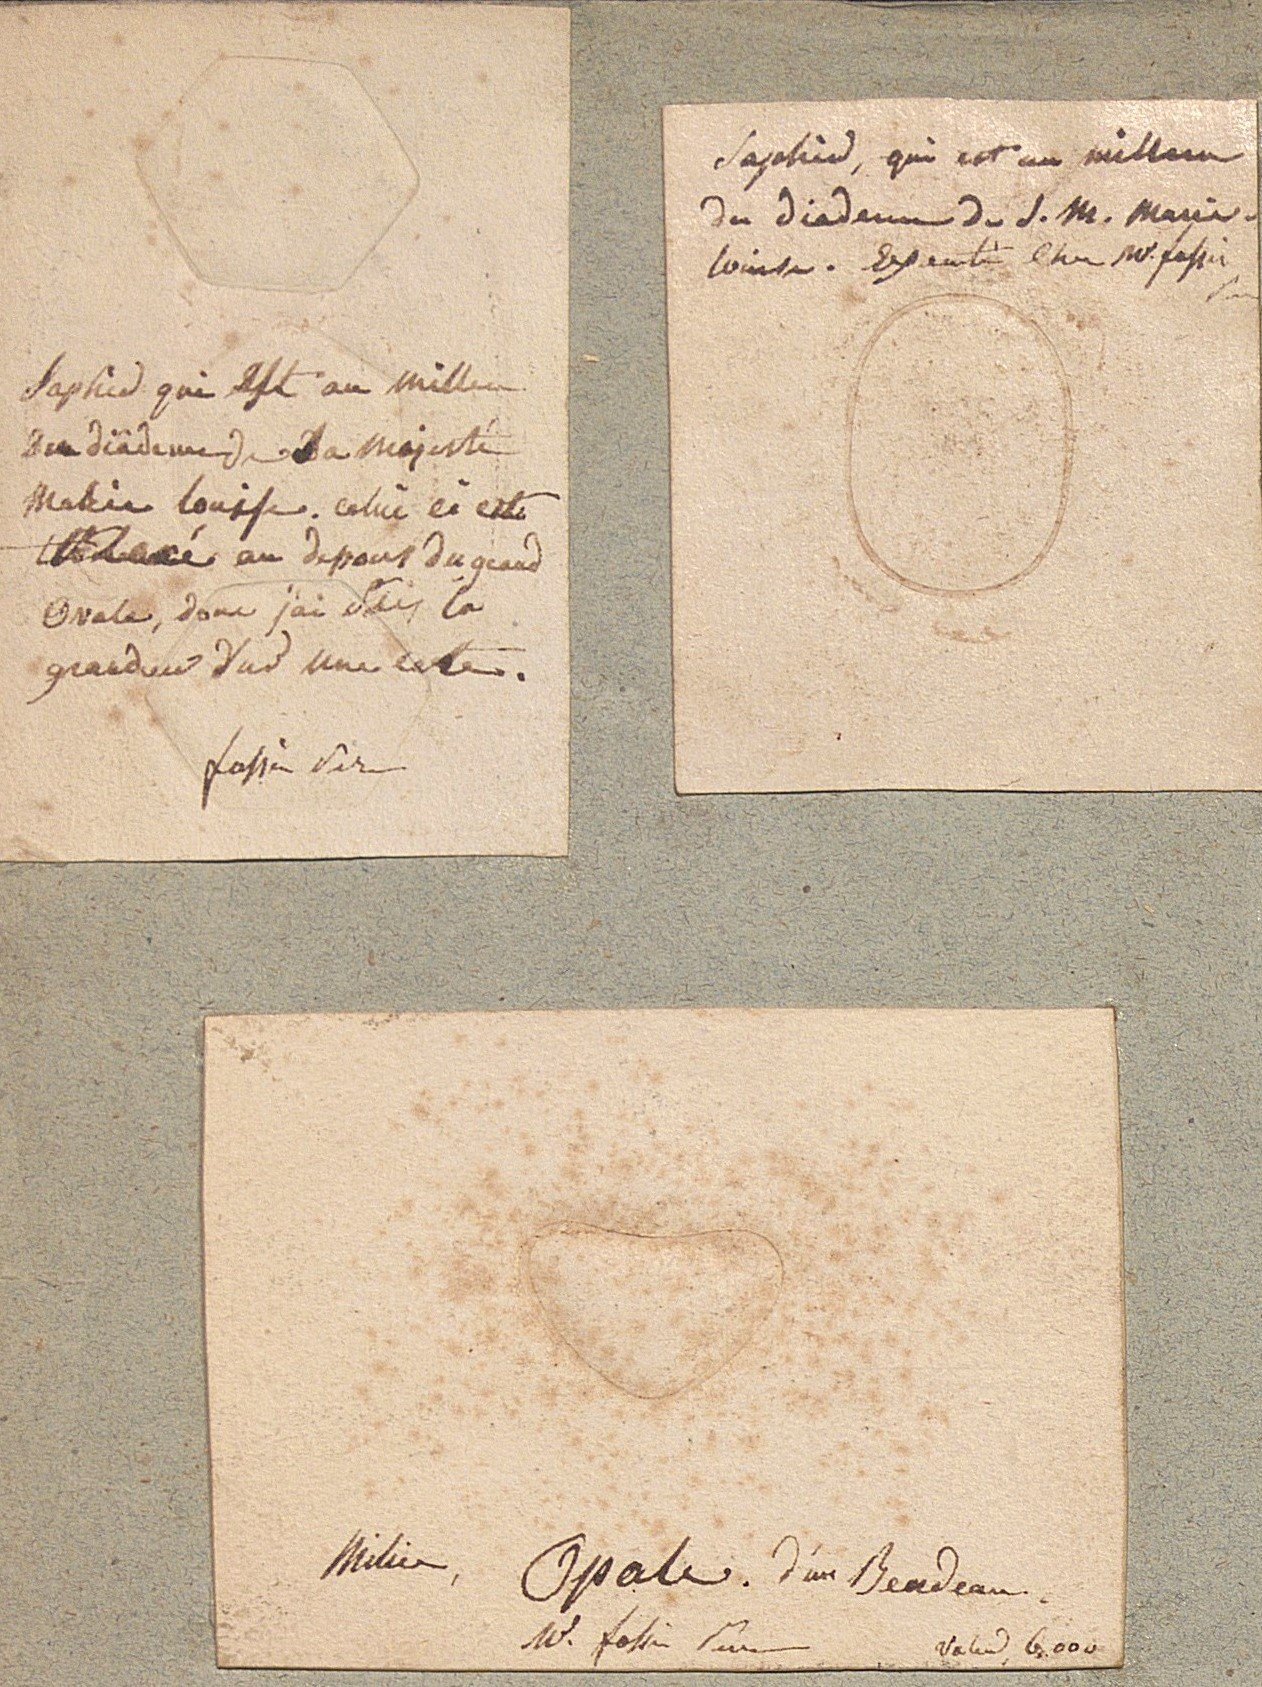 Saphir qui Est au Millieu
Du diademe de Sa Majesté
Marie Louise. celui ci est
placé au depour du grand
Ovale, donc j'ai la
grandeur Sur Une carte.
fossin
Saphir, qui est au millieu
du diademe de S. M. Marie-
louise. Executé Chez Mr. fossin
Milieu, Opale. d'un Bendeau.
Mr. fossin valeur 6,000